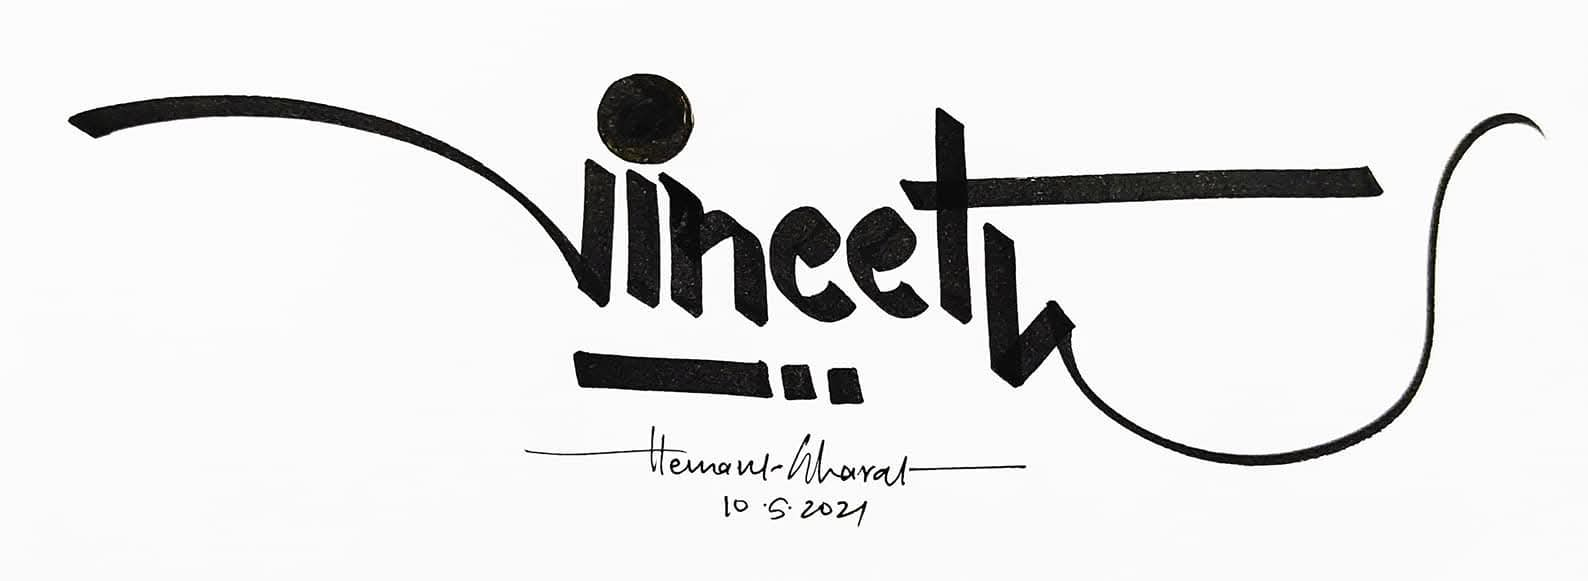 vineeth
Hemant Gharat
10.5.2021